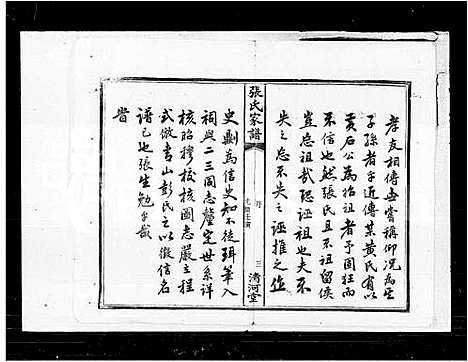 孝友相傳世嘗稱仰况為其
子孫者乎近傳某黄氏有以
黄石公為始祖者予固經而
不信也然張氏且不祖留侯
豈忘祖哉恐誣祖也夫不
失之忘不失之誣推之作
張氏家譜
序
三
清河堂
史剿為信史知不徒珥筆入
祠與二三同志釐定世系詳
核昭穆校核圖志嚴立程
式倣青山彭氏之以徵信名
譜已也張生勉乎哉
峕